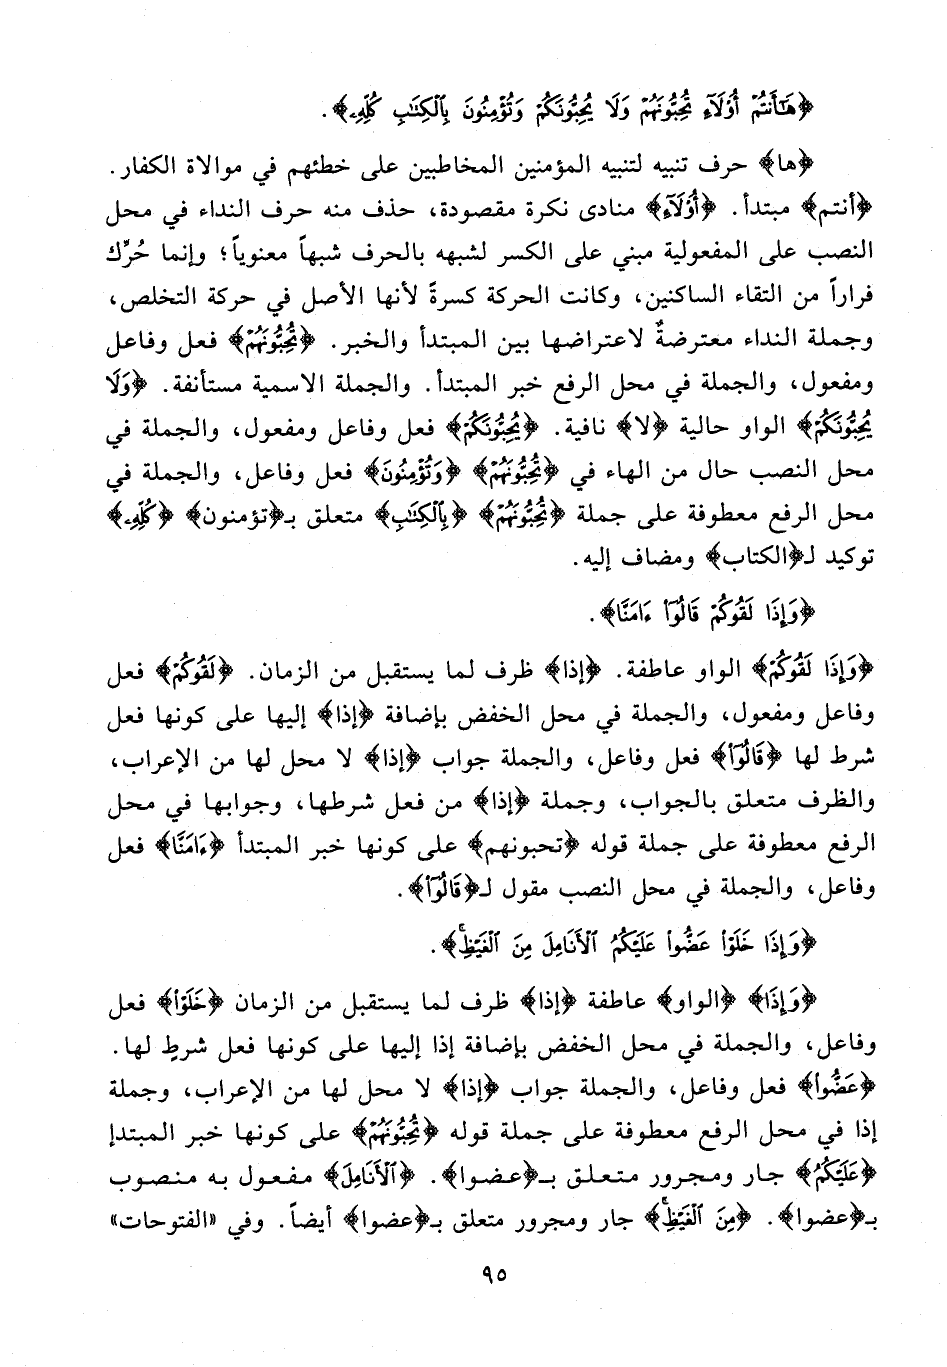 ﴿هَٰٓأَنتُمْ أُو۟لَآءِ تُحِبُّونَهُمْ وَلَا يُحِبُّونَكُمْ وَتُؤْمِنُونَ بِٱلْكِتَٰبِ كُلِّهِۦ﴾.
﴿ها﴾ حرف تنبيه لتنبيه المؤمنين المخاطبين على خطئهم في موالاة الكفار.
﴿أنتم﴾ مبتدأ. ﴿أُو۟لَآءِ﴾ منادى نكرة مقصودة، حذف منه حرف النداء في محل
النصب على المفعولية مبني على الكسر لشبهه بالحرف شبهاً معنوياً؛ وإنما حُرِّك
فراراً من التقاء الساكنين، وكانت الحركة كسرةً لأنها الأصل في حركة التخلص،
وجملة النداء معترضةٌ لاعتراضها بين المبتدأ والخبر. ﴿تُحِبُّونَهُمْ﴾ فعل وفاعل
ومفعول، والجملة في محل الرفع خبر المبتدأ. والجملة الاسمية مستأنفة. ﴿وَلَا
يُحِبُّونَكُمْ﴾ الواو حالية ﴿لا﴾ نافية. ﴿يُحِبُّونَكُمْ﴾ فعل وفاعل ومفعول، والجملة في
محل النصب حال من الهاء في ﴿تُحِبُّونَهُمْ﴾ ﴿وَتُؤْمِنُونَ﴾ فعل وفاعل، والجملة في
محل الرفع معطوفة على جملة ﴿تُحِبُّونَهُمْ﴾ ﴿بِٱلْكِتَٰبِ﴾ متعلق بـ﴿تؤمنون﴾ ﴿كُلِّهِۦ﴾
توكيد لـ﴿الكتاب﴾ ومضاف إليه.
﴿وَإِذَا لَقُوكُمْ قَالُوٓا۟ ءَامَنَّا﴾.
﴿وَإِذَا لَقُوكُمْ﴾ الواو عاطفة. ﴿إذا﴾ ظرف لما يستقبل من الزمان. ﴿لَقُوكُمْ﴾ فعل
وفاعل ومفعول، والجملة في محل الخفض بإضافة ﴿إذا﴾ إليها على كونها فعل
شرط لها ﴿قَالُوٓا۟﴾ فعل وفاعل، والجملة جواب ﴿إذا﴾ لا محل لها من الإعراب،
والظرف متعلق بالجواب، وجملة ﴿إذا﴾ من فعل شرطها، وجوابها في محل
الرفع معطوفة على جملة قوله ﴿تحبونهم﴾ على كونها خبر المبتدأ ﴿ءَامَنَّا﴾ فعل
وفاعل، والجملة في محل النصب مقول لـ﴿قَالُوٓا۟﴾.
﴿وَإِذَا خَلَوْا۟ عَضُّوا۟ عَلَيْكُمُ ٱلْأَنَامِلَ مِنَ ٱلْغَيْظِۚ﴾.
﴿وَإِذَا﴾ ﴿الواو﴾ عاطفة ﴿إذا﴾ ظرف لما يستقبل من الزمان ﴿خَلَوْا۟﴾ فعل
وفاعل، والجملة في محل الخفض بإضافة إذا إليها على كونها فعل شرطٍ لها.
﴿عَضُّوا۟﴾ فعل وفاعل، والجملة جواب ﴿إذا﴾ لا محل لها من الإعراب، وجملة
إذا في محل الرفع معطوفة على جملة قوله ﴿تُحِبُّونَهُمْ﴾ على كونها خبر المبتدإ
﴿عَلَيْكُمُ﴾ جار ومجرور متعلق بـ﴿عضوا﴾. ﴿ٱلْأَنَامِلَ﴾ مفعول به منصوب
بـ﴿عضوا﴾. ﴿مِنَ ٱلْغَيْظِۚ﴾ جار ومجرور متعلق بـ﴿عضوا﴾ أيضاً. وفي «الفتوحات»
٩٥